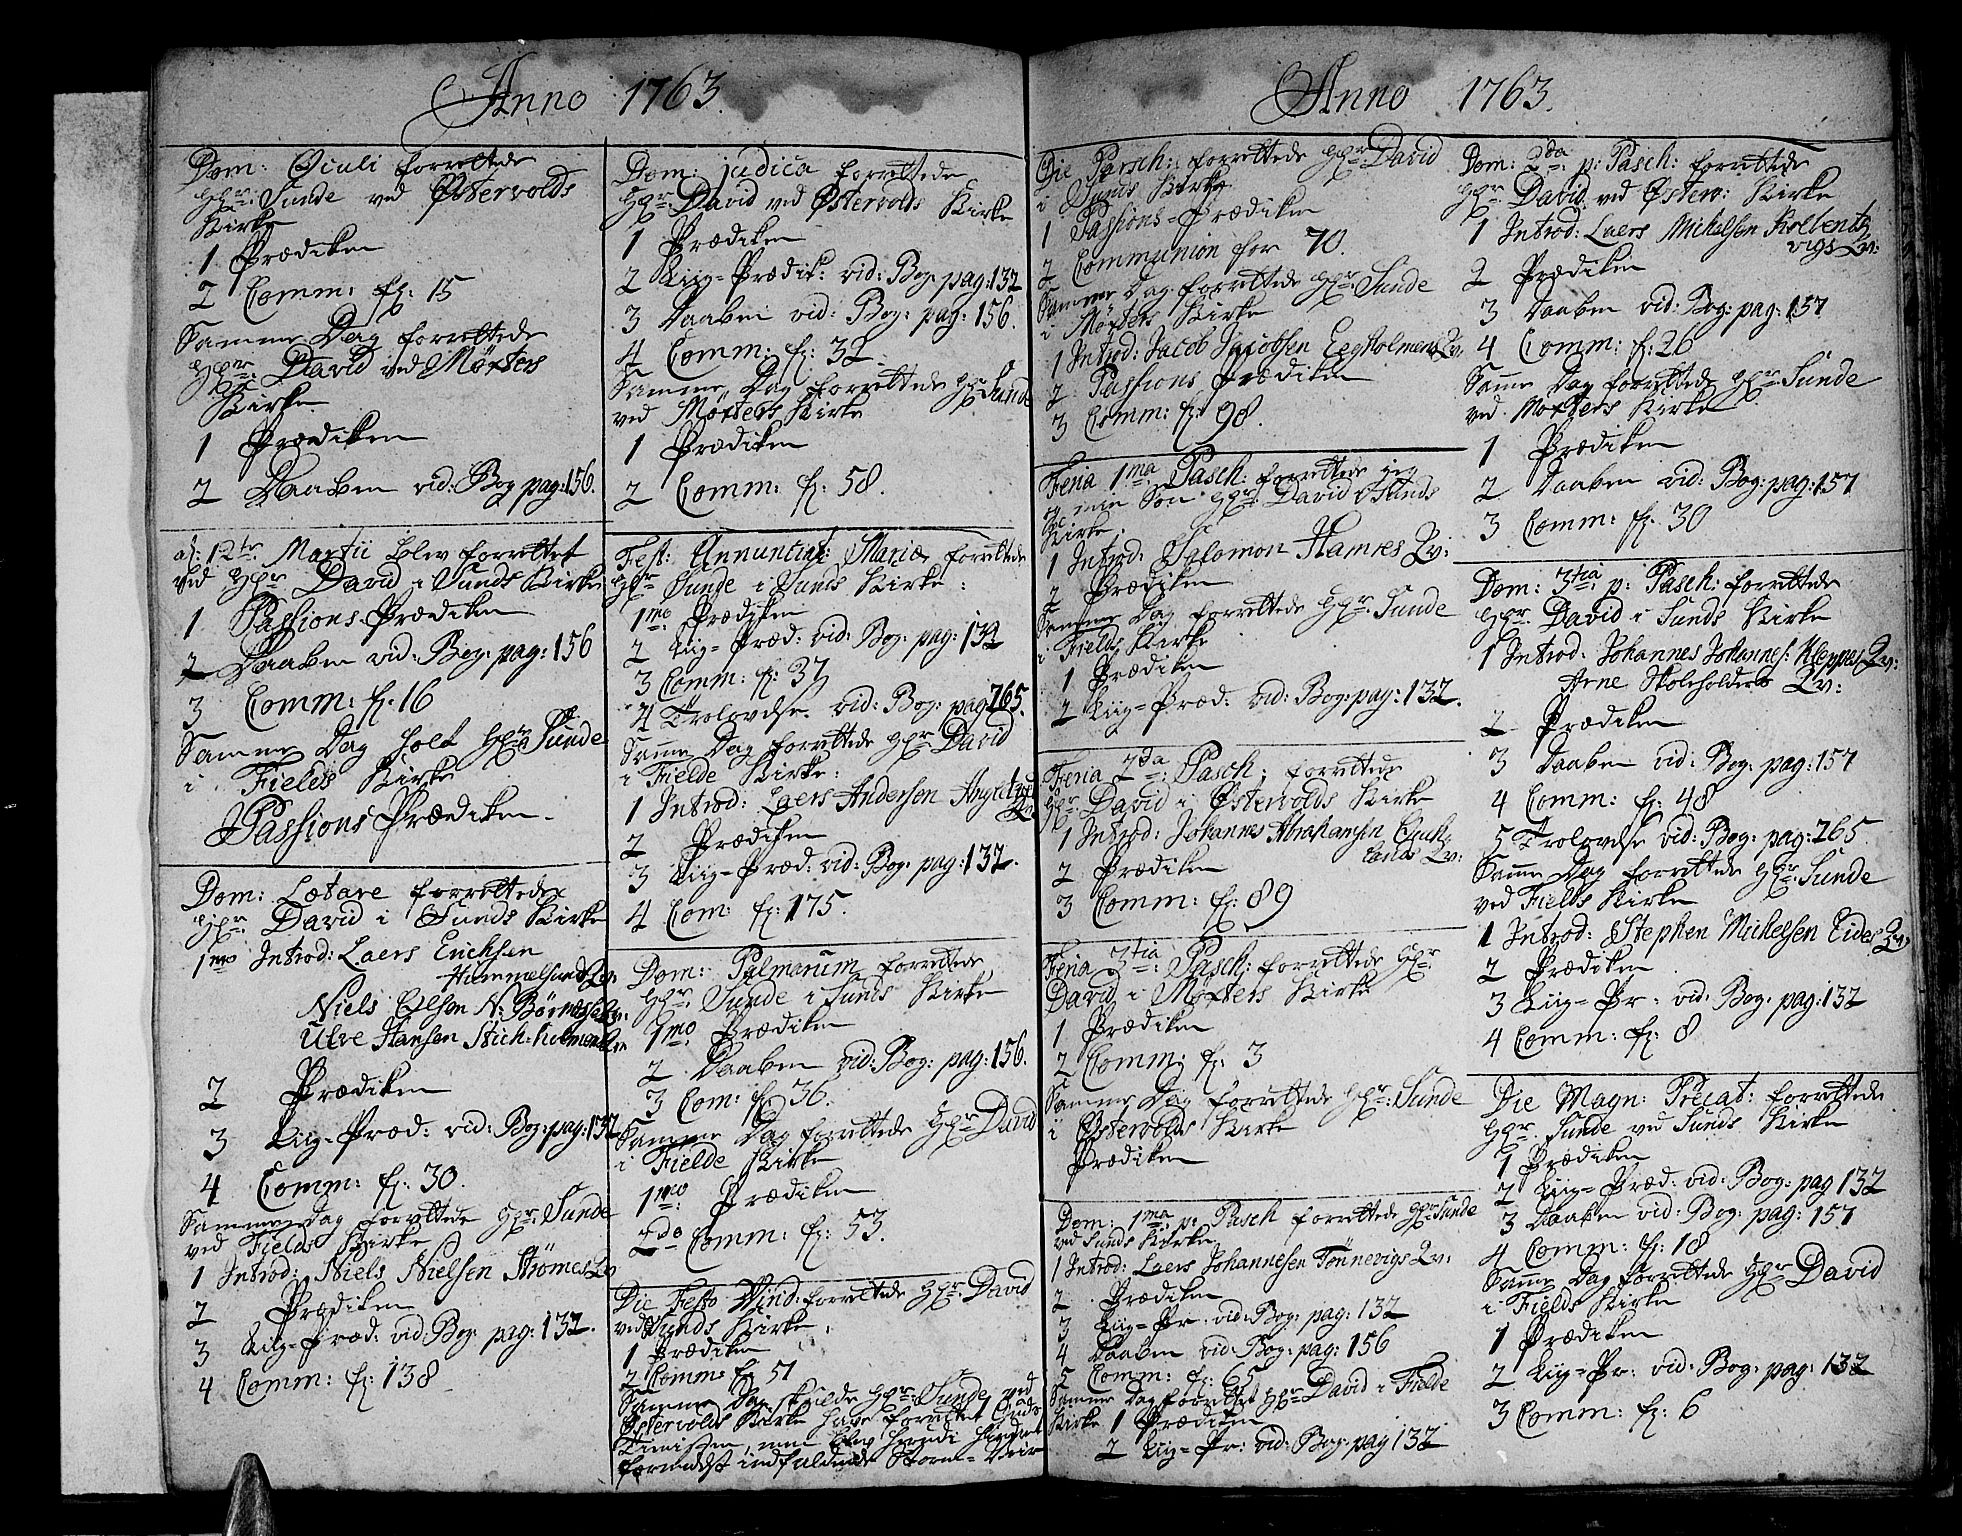 Anno 1763.
Dom: Oculi forrettede
Hr: Sunde ved Østervolds
Kirke
1 Prædiken
2 Comm: f: 15
Samme Dag forrettede
Hr: David ved Møxters
Kirke
1 Prædiken
2 Daaben vid: Bog pag: 156.
d: 12te Martii blev forrettet
ved Hr David i Sunds Kirke
1 Passions-Prædiken
2 Daaben vid: Bog: pag: 156
3 Comm: f: 16
Samme Dag holt Hr: Sunde
i Fields Kirke
Passions Prædiken.
Dom: Lætare forrettede
Hr: David i Sunds Kirke
1mo Introd: Laers Erichsen
Hummelsund Qv:
Niels Olsen N: Børnæs Qv:
Ulve Hansen Stichholmen Qv:
2 Prædiken
3 Liig-Præd: vid: Bog: pag: 132
4 Comm: f: 30.
Samme Dag forrettede Hr: Sunde
ved Fields Kirke
1 Introd: Niels Nielsen Strømes Qv
2 Prædiken
3 Liig-Præd: vid: Bog: pag: 132.
4 Comm: f: 138
Dom: judica forrettede
Hr: David ved Østervolds Kirke
1 Prædiken
2 Liig-Prædik: vid: Bog: pag: 132
3 Daaben vid: Bog: pag: 156.
4 Comm: f: 32
Samme Dag forrettede Hr: Sunde
ved Møxters Kirke
1 Prædiken
2 Comm: f: 58.
Fest: Annuntiat: Mariæ forrettede
Hr Sunde i Sunds Kirke:
1mo: Prædiken
2 Liig-Præd: vid: Bog: pag: 132
3 Comm: f: 37
4 Trolovelse vid: Bog: pag 265.
Samme Dag forrettede Hr: David
i Fielde Kirke:
1 Introd: Laers Andersen
Qv:
2 Prædiken
3 Liig-Præd: vid: Bog: pag: 132.
4 Com: f: 175.
Dom: Palmarum forrettede
Hr: Sunde i Sunds Kirke
1mo: Prædiken
2 Daaben vid: Bog: pag: 156.
3 Com: f: 36.
Samme Dag forrettede Hr: David
i Fielde Kirke
1mo: Prædiken
2do Comm: f: 53.
Die Festo Virid: forrettede Hr: David
ved Sunds Kirke.
1 Prædiken
2 Comm: f: 51
Samme Dag skulde Hr: Sunde ved
Østervolds Kirke have forrettet Guds
Tienisten, men blev herudi hindret
formedelst indfaldende Storm-Veir
Anno 1763.
Die Parsch: forrettede Hr: David
i Sunds Kirke
1 Passions-Prædiken
2 Communion for 70.
Samme Dag forrettede Hr: Sunde
i Møxters Kirke
1 Introd: Jacob Jacobsen Eegholmens Qv:
2 Passions Prædiken
3 Comm: f: 98.
Feria 1ma Pasch: forrettede jeg
og min Søn Hr: David i Sunds
Kirke.
1 Introd: Salomon Hamres Qv:
2 Prædiken
Samme Dag forrettede Hr: Sunde
i Fields Kirke
1 Prædiken
2 Liig-Præd: vid: Bog: pag: 132.
Feria 2da: Pasch: forrettede
Hr: David i Østervolds Kirke
1 Introd: Johannes Abrahamsen
Qv:
2 Prædiken
3 Comm: f: 89
Feria 3tia: Pasch: forrettede Hr:
David i Møxters Kirke
1 Prædiken
2 Comm: f: 3
Samme Dag forrettede Hr: Sunde
i Østervolds Kirke
Prædiken
Dom: 1ma: p: Pasch forrettede Hr: Sunde
ved Sunds Kirke
1 Introd: Laers Johannesen Tønnevigs Qv:
2 Prædiken
3 Liig-Pr: vid: Bog: pag: 132
4 Daaben vid: Bog: pag: 156
5 Comm: f: 65
Samme Dag forrettet Hr: David i Fielde
Kirke 1 Prædiken
2 Liig-Pr: vid: Bog: pag 132
Dom: 2da p: Pasch: forrettede
Hr: David ved Østerv: Kirke
1 Introd: Laers Mickelsen Kolbents
vigs Qv:
2 Prædiken
3 Daaben vid: Bog: pag: 157
4 Comm: f: 26
Samme Dag forrettede Hr: Sunde
ved Møxters Kirke
1 Prædiken
2 Daaben vid: Bog: pag: 157
3 Comm: f: 30
Dom: 3tia: p: Pasch: forrettede
Hr: David i Sunds Kirke
1 Introd: Johannes Johannes: Kleppes Qv:
Arne Skoleholders Qv:
2 Prædiken
3 Daaben vid: Bog: pag: 157
4 Comm: f: 48
5 Trolovelse vid: Bog: pag: 265.
Samme Dag forrettede Hr: Sunde
ved Fields Kirke
1 Introd: Stephen Mickelsen Eides Qv:
2 Prædiken
3 Liig-Pr: vid: Bog: pag: 132
4 Comm: f: 8
Die Magn: Precat: forrettede
Hr: Sunde ved Sunds Kirke
1 Prædiken
2 Liig-Præd: vid: Bog: pag 132
3 Daaben vid: Bog: pag: 157
4 Comm: f: 18
Samme Dag forrettede Hr David
i Fields Kirke
1 Prædiken
2 Liig-Pr: vid: Bog: pag: 132
3 Comm: f: 6